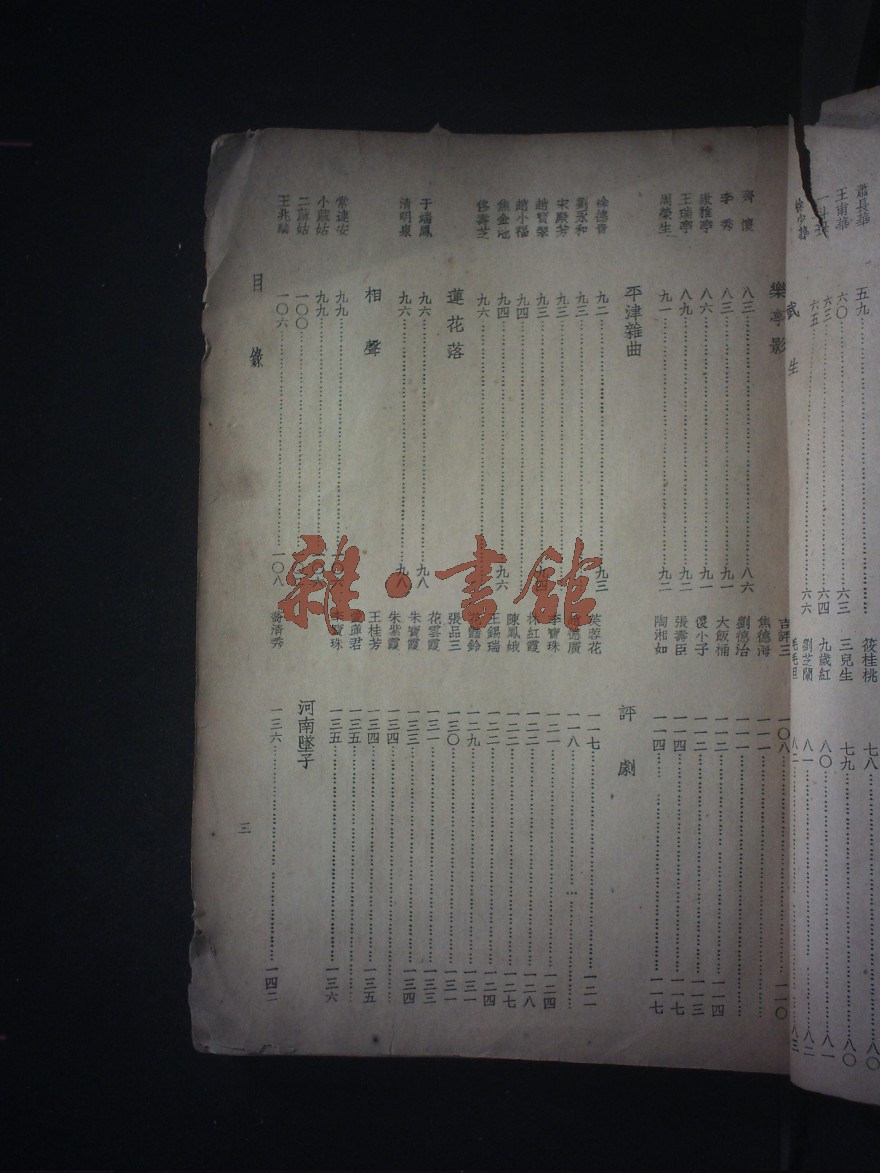 蕭長華 五九
王甫華 六〇……六三
六三……六四
六五……六六
武生
筱桂桃 七八……八〇
三兒生 七九……八〇
九歲紅 八〇……八一
劉芝蘭 八一……八二
毛毛旦 八二……八三
樂亭影
齊儍 八三……八六
李秀 八三……九一
八六……九一
王瑞亭 八九……九二
周榮生 九一……九二
平津雜曲
徐德香 九二……九三
劉永和 九三
宋殿芳 九三
趙寶翠 九三……九四
趙小福 九四
焦金池 九四……九六
佟壽芝 九六
蓮花落
于瑞鳳 九六……九八
清明泉 九六……九八
相聲
常連安 九九
小蘑菇 九九
二蘑菇 一〇〇
王兆麟 一〇六……一〇八
吉評三 一〇八……一一〇
焦德海 一一一
劉德治 一一一
大飯桶 一一二……一一四
儍小子 一一二……一一三
張壽臣 一一四……一一七
陶湘如 一一四……一一七
評劇
芙蓉花 一一七……一二一
一一八
李寶珠 一二一……一二四
林紅霞 一二二……一二八
陳鳳娥 一二二……一二七
王錫瑞 一二二……一二四
一二九……一三一
張品三 一三〇……一三一
花雲霞 一三一……一三三
朱寶霞 一三三……一三四
朱紫霞 一三四
王桂芳 一三四……一三五
一三五
李寶珠 一三五……一三六
河南墜子
喬清秀 一三六……一四二
目錄
三
雜·書館